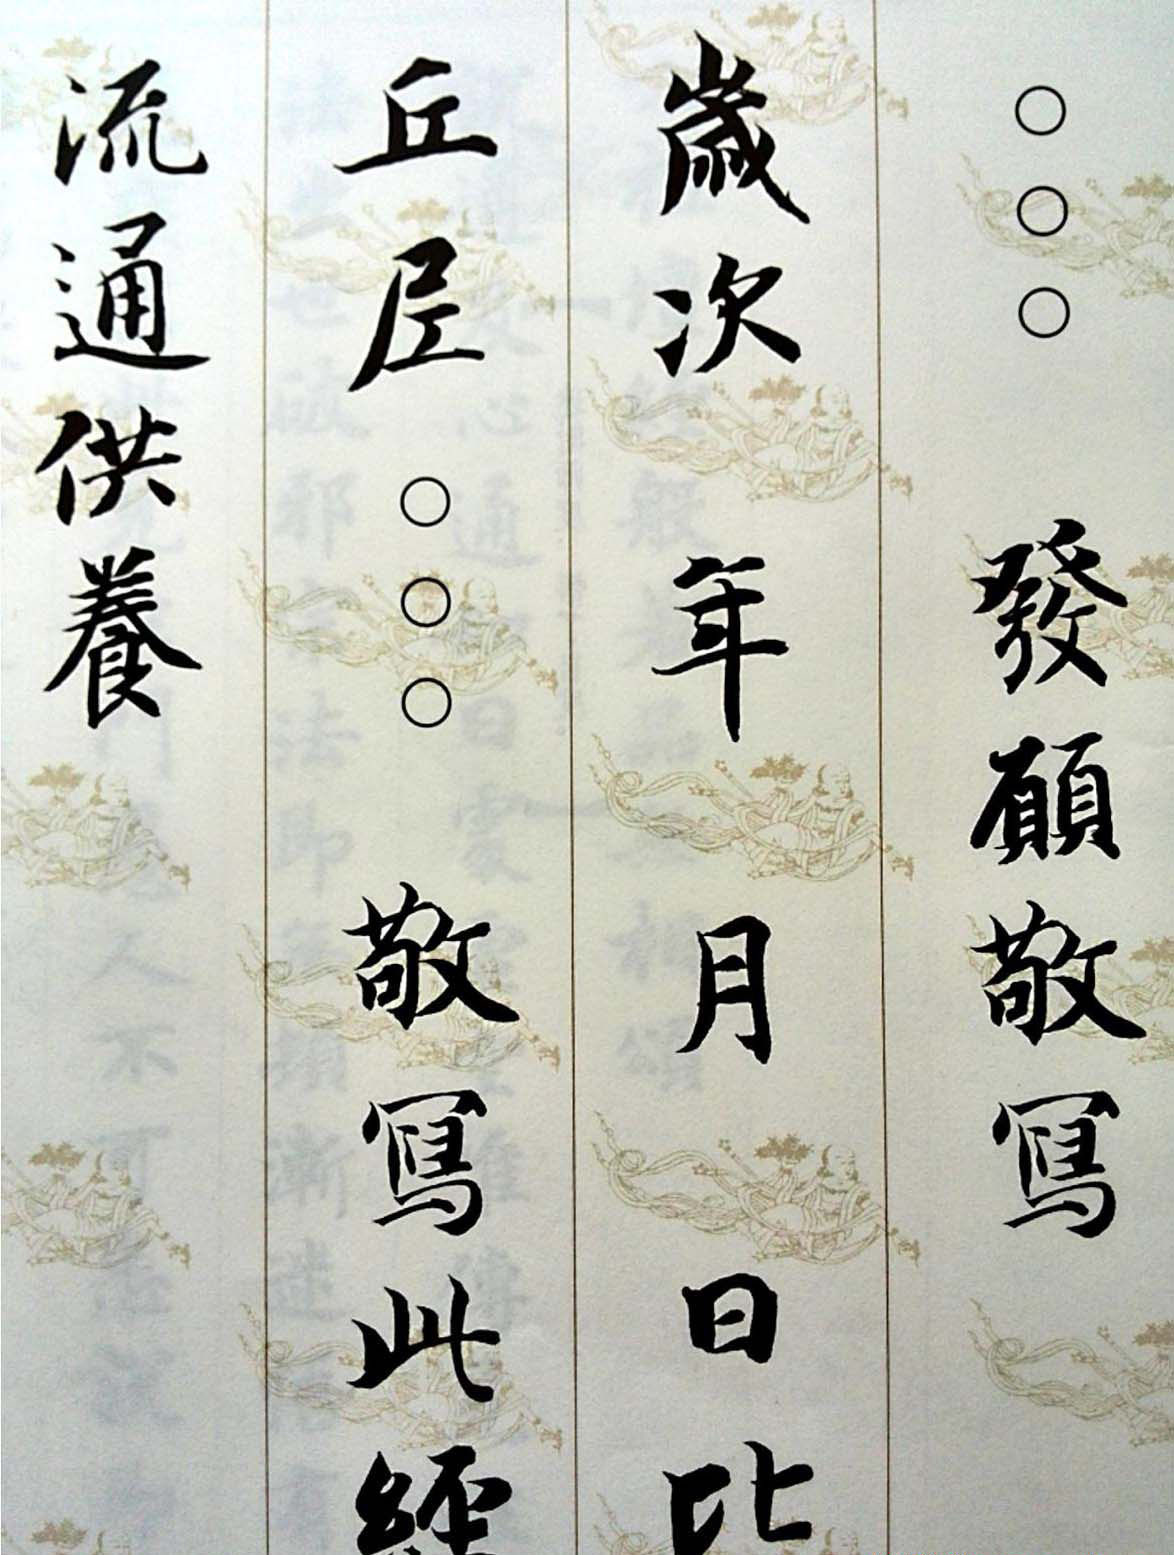 ○○○ 發願敬寫
歲次 年 月 日比
丘尼○○○ 敬寫此經
流通供養